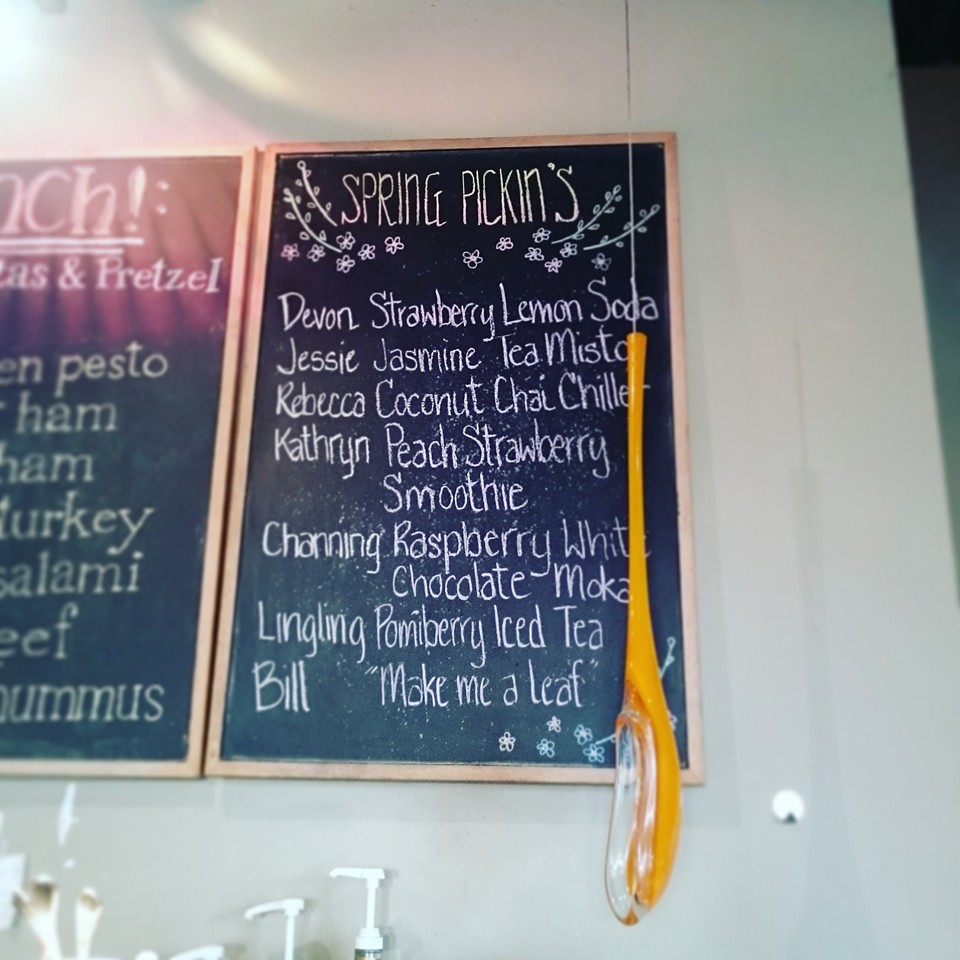 nch!:
tas & Pretzel
en pesto
ham
ham
turkey
salami
eef
hummus
SPRING PICKIN'S
Devon Strawberry Lemon Soda
Jessie Jasmine Tea Misto
Rebecca Coconut Chai Chiller
Kathryn Peach Strawberry
Smoothie
Channing Raspberry White
Chocolate Moka
Lingling Pomiberry Iced Tea
Bill "Make me a leaf"